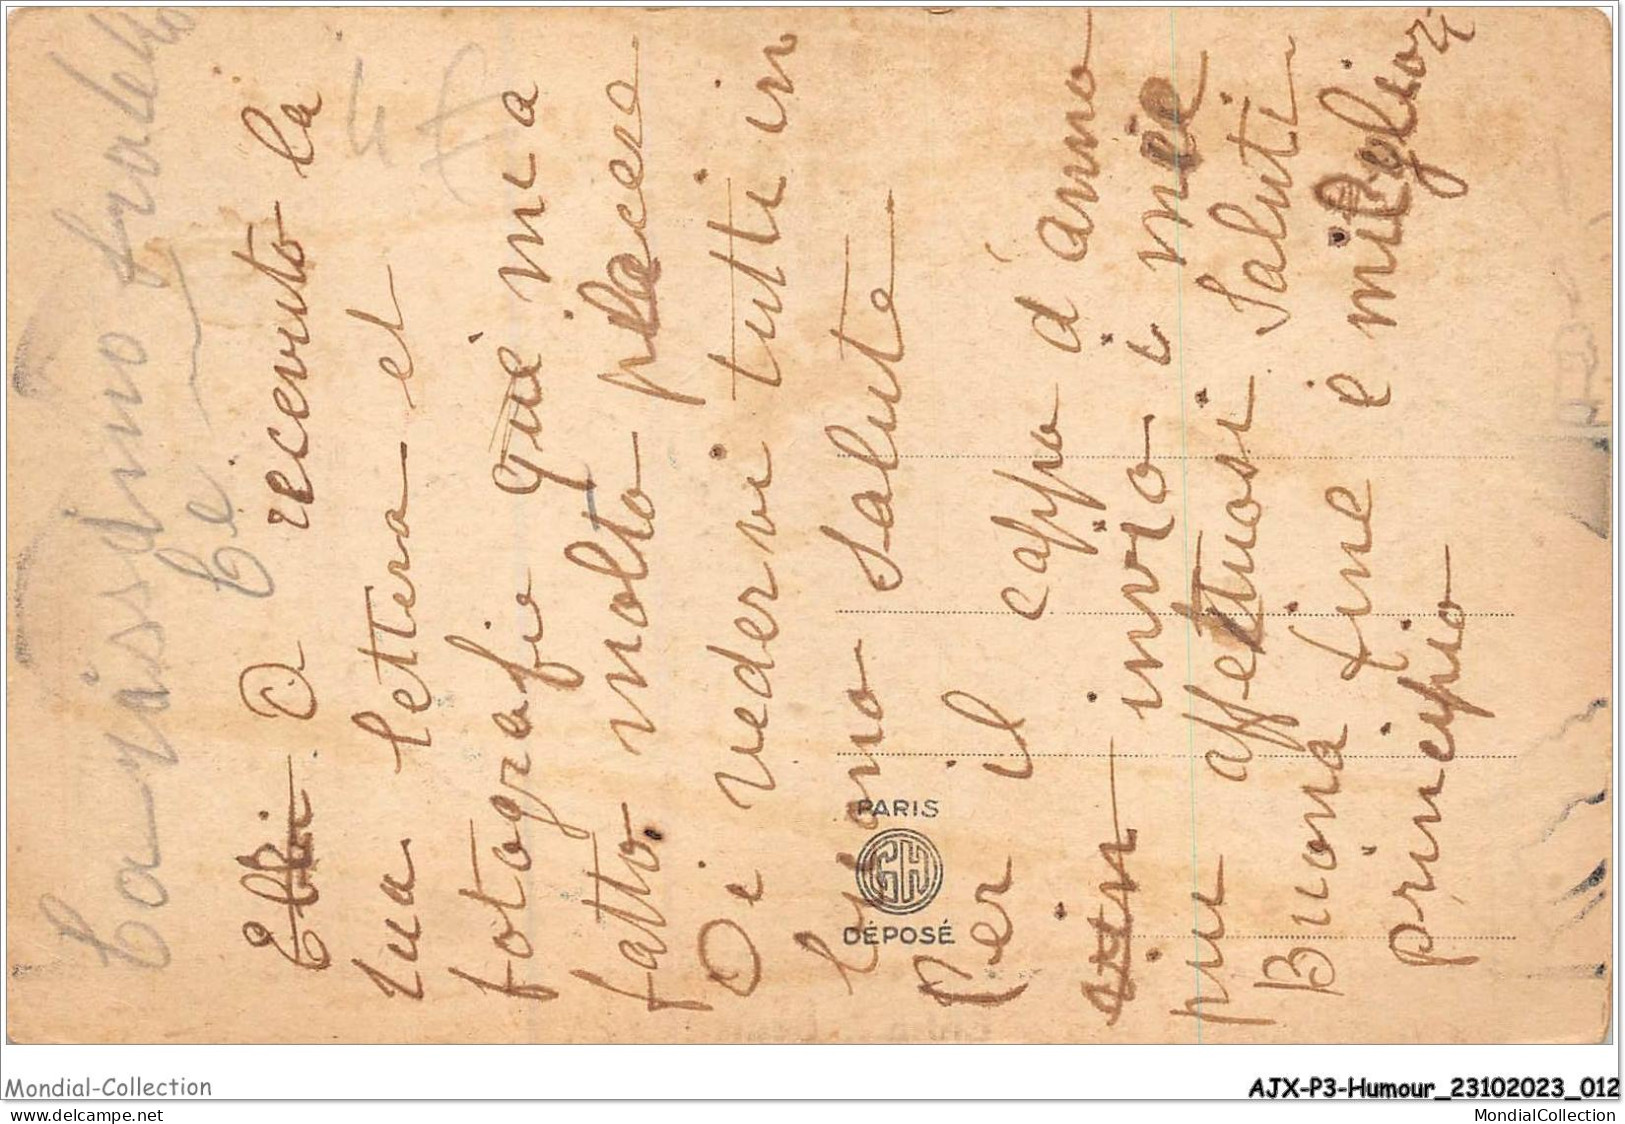 Carissimo fratello
O recevuto la
sua lettera et
fotografie que mi a
fatto molto piacere
Di vedervi tutti in
buono Salute
Per il cappo d'anno
invio i mie
piu affettuosi Saluti
Buona fine e migliori
principio
PARIS
GH
DÉPOSÉ
Mondial-Collection
AJX-P3-Humour_23102023_012
www.delcampe.net
MondialCollection